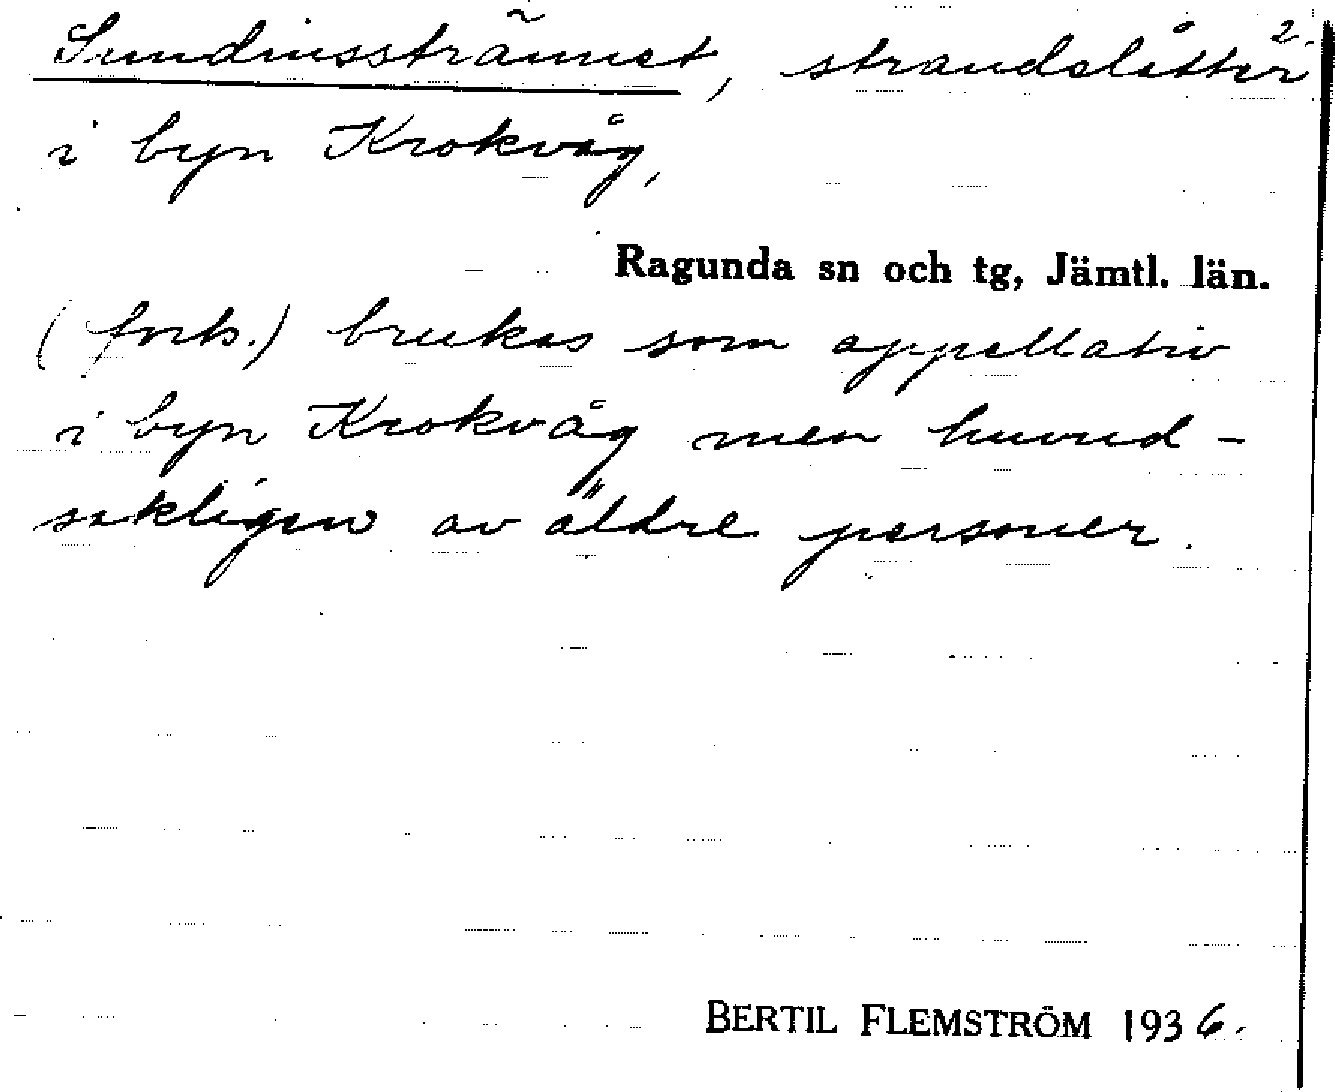 Sundinsstrännet, strandslåtter 2.
i byn Krokvåg,
Ragunda sn och tg, Jämtl. län.
(forts.) brukas som appellativ
i byn Krokvåg men huvud-
sakligen av äldre personer.
BERTIL FLEMSTRÖM 1936.